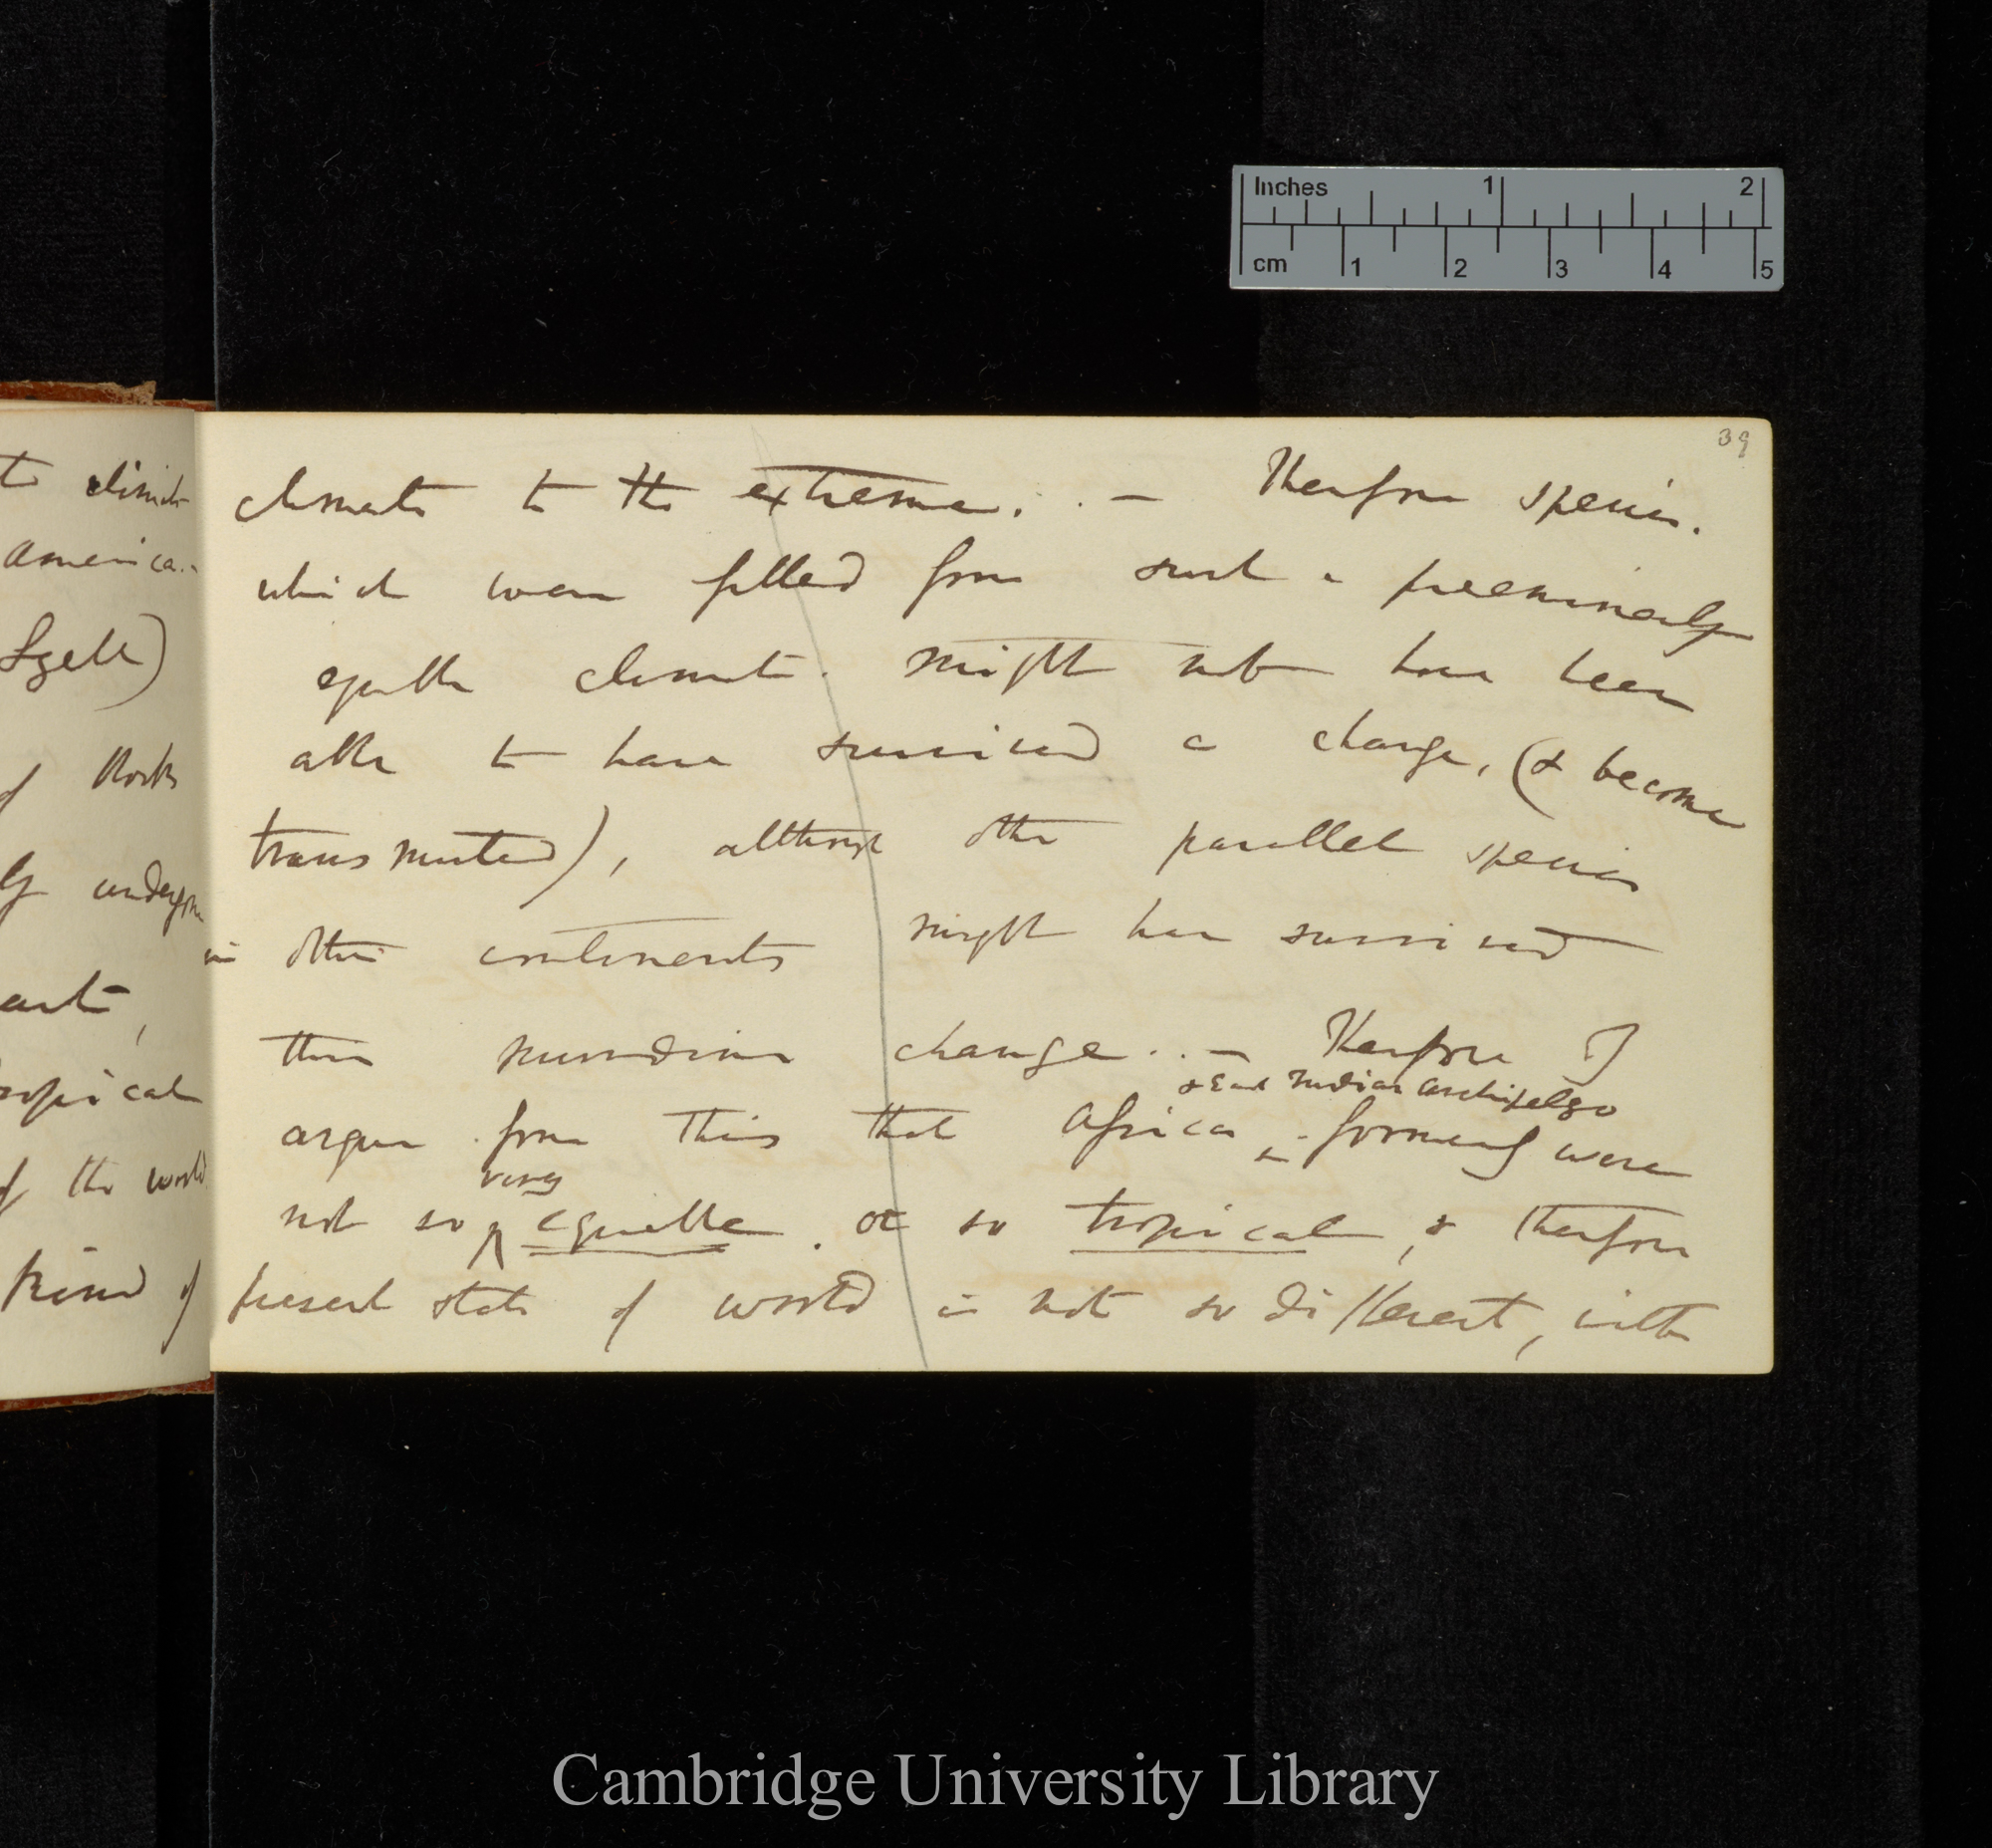 Inches 1 2
cm 1 2 3 4 5
39
to climate
America.-
Lyell)
of Rocks
undergone
tropical
of the world
kind of
climate to the extreme. . — Therefore species.
which were fitted for such a preeminently
equable climate. might not have been
able to have survived a change, (& become
transmuted), although other parallel species
in other continents might have survived
their mundine change. . — Therefore I
& East Indian Archipelago
argue from this that Africa ^ formerly were
very
not so ^ equable. or so tropical, & therefore
present state of world is not so different, with
Cambridge University Library